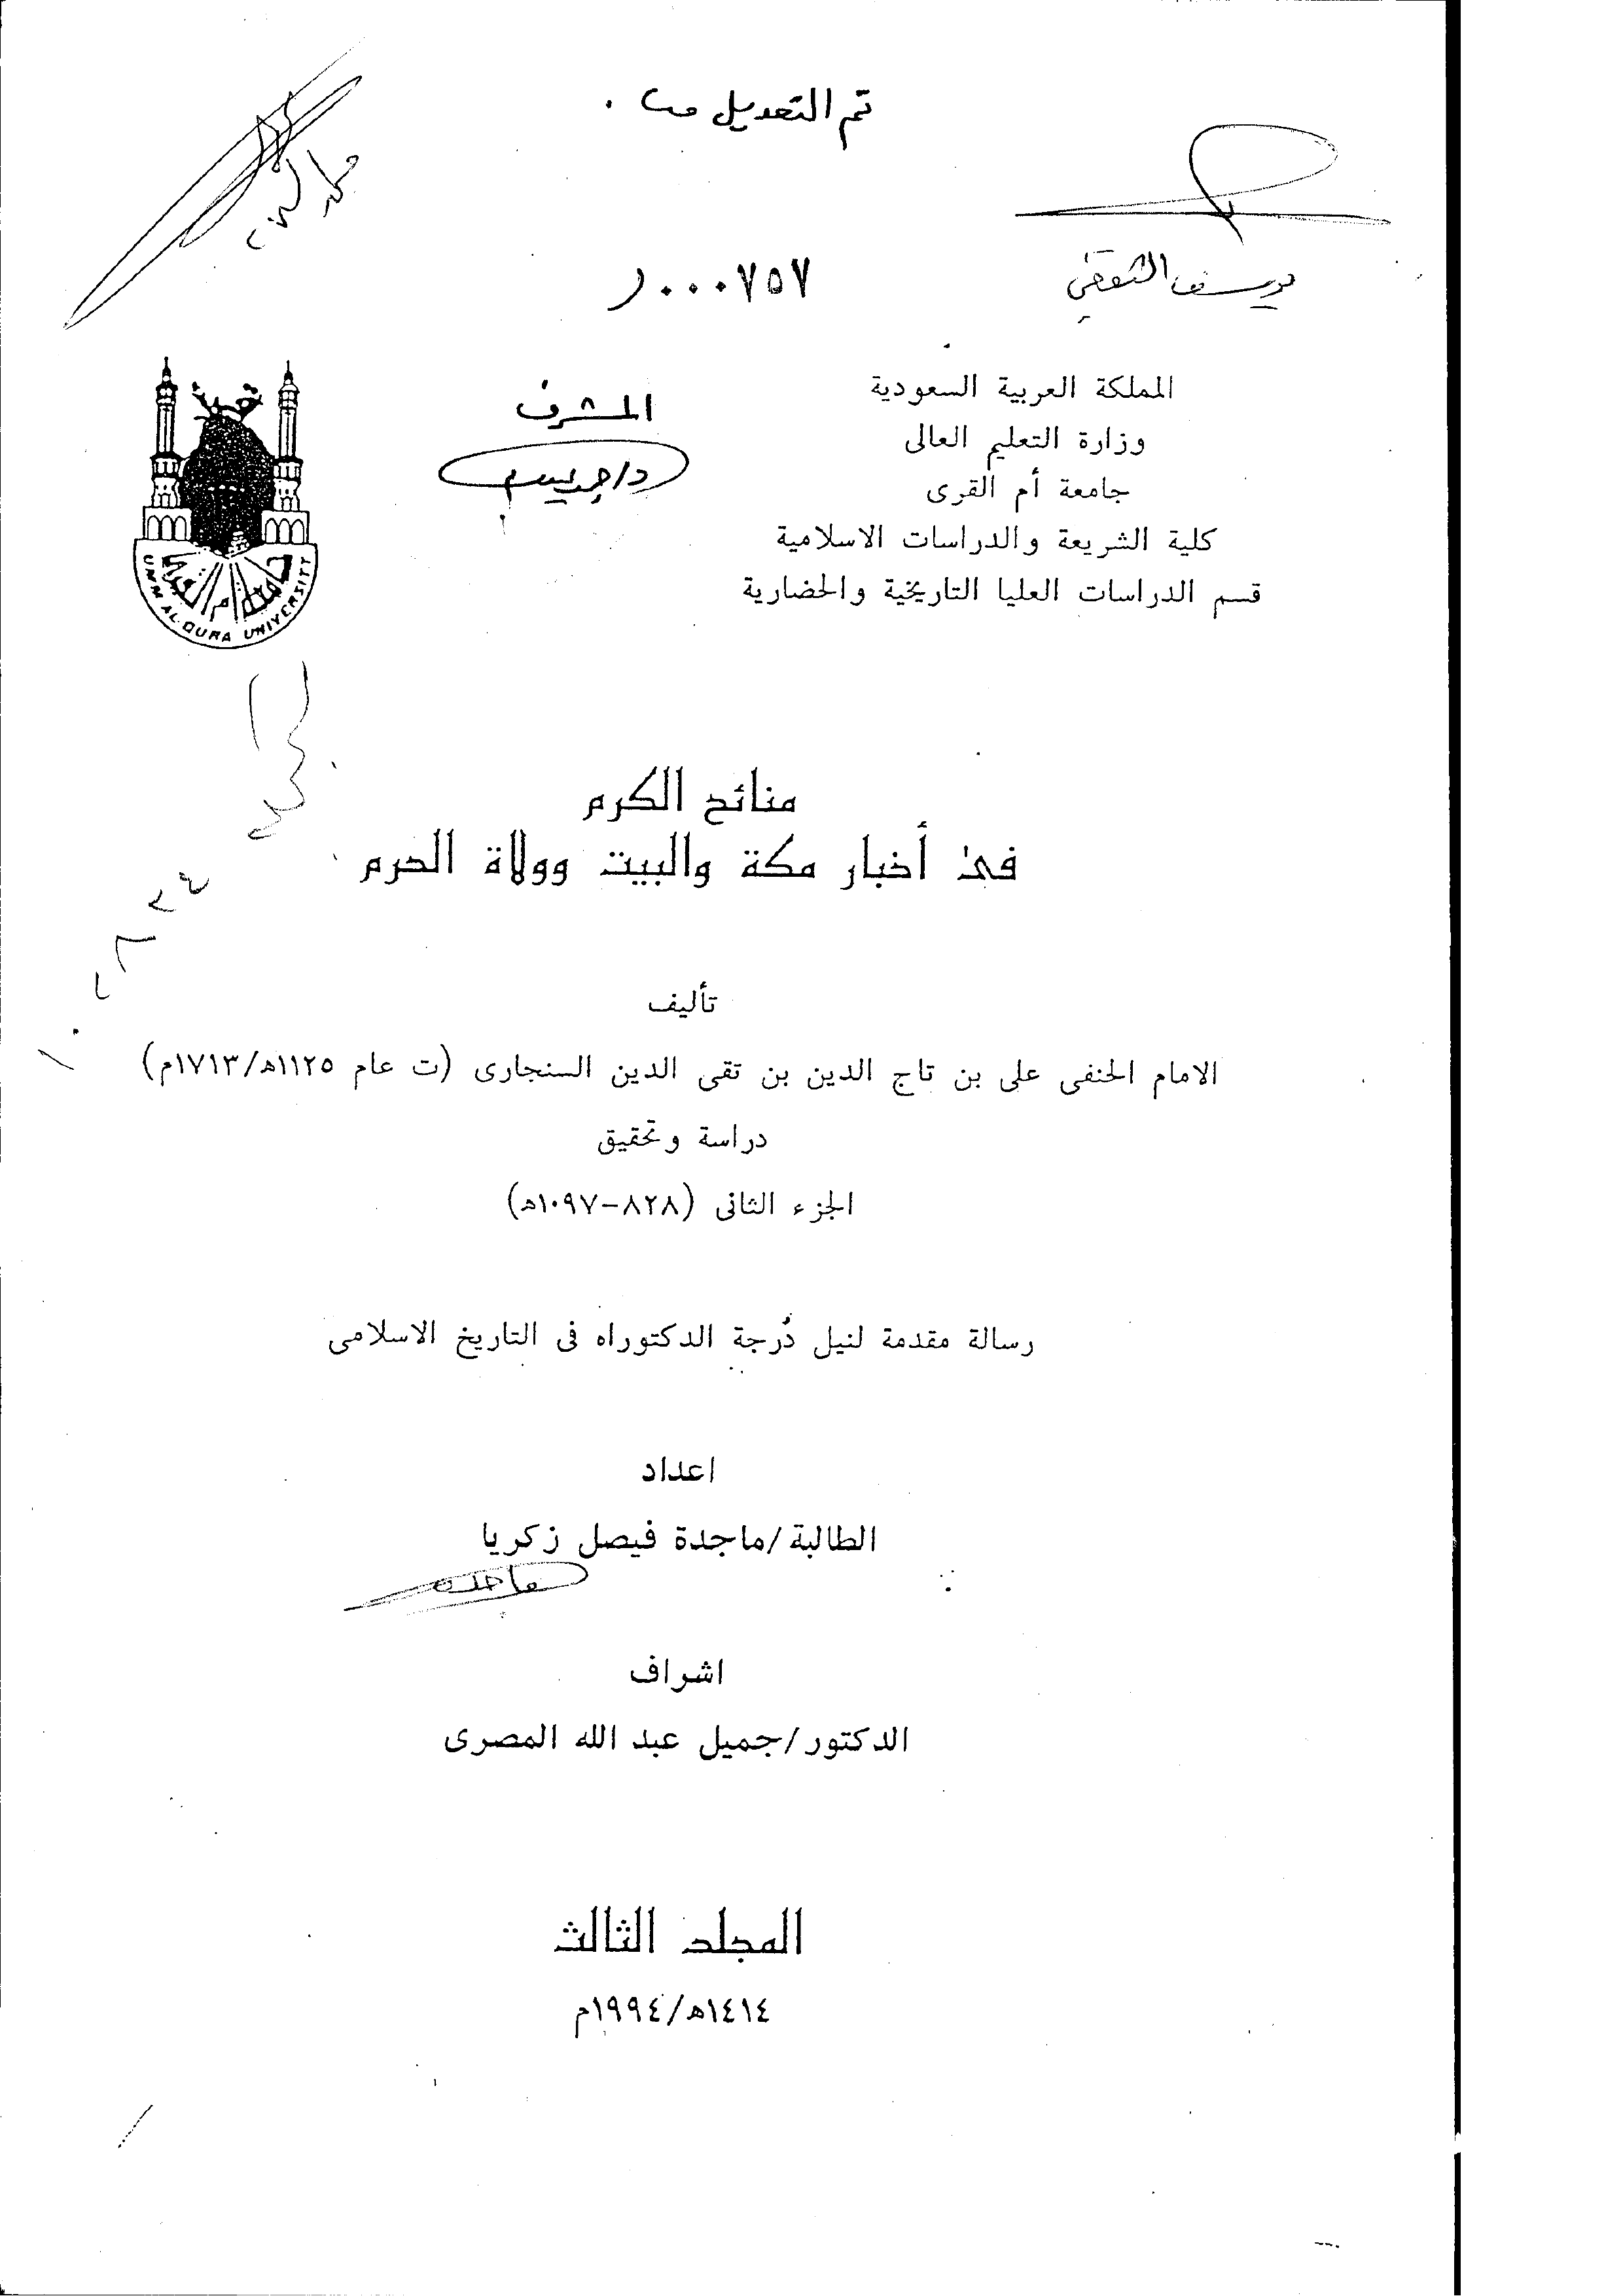 تم التعديل
يوسف الثقفي
٧٥٧٠٠٠ر
المملكة العربية السعودية
وزارة التعليم العالى
جامعة أم القرى
كلية الشريعة والدراسات الاسلامية
قسم الدراسات العليا التاريخية والحضارية
المشرف
د/جميل
جامعة أم القرى
UMM AL-QURA UNIVERSITY
منائح الكرم
فى أخبار مكة والبيت وولاة الحرم
تأليف
الامام الحنفى على بن تاج الدين بن تقى الدين السنجارى (ت عام ١١٢٥ه/١٧١٣م)
دراسة وتحقيق
الجزء الثانى (٨٢٨-١٠٩٧ه)
رسالة مقدمة لنيل درجة الدكتوراه فى التاريخ الاسلامى
اعداد
الطالبة/ماجدة فيصل زكريا
ماجدة
اشراف
الدكتور/جميل عبد الله المصرى
المجلد الثالث
١٤١٤ه/١٩٩٤م